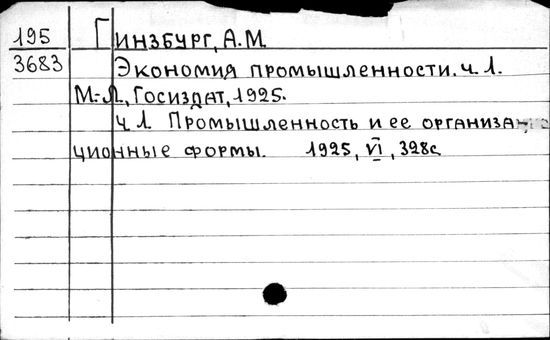 195 Гинзбург, А.М.
3683 Экономия промышленности. ч.1.
М.-Л., Госиздат, 1925.
ч.1. Промышленность и ее организа-
ционные формы. 1925, VI, 328с